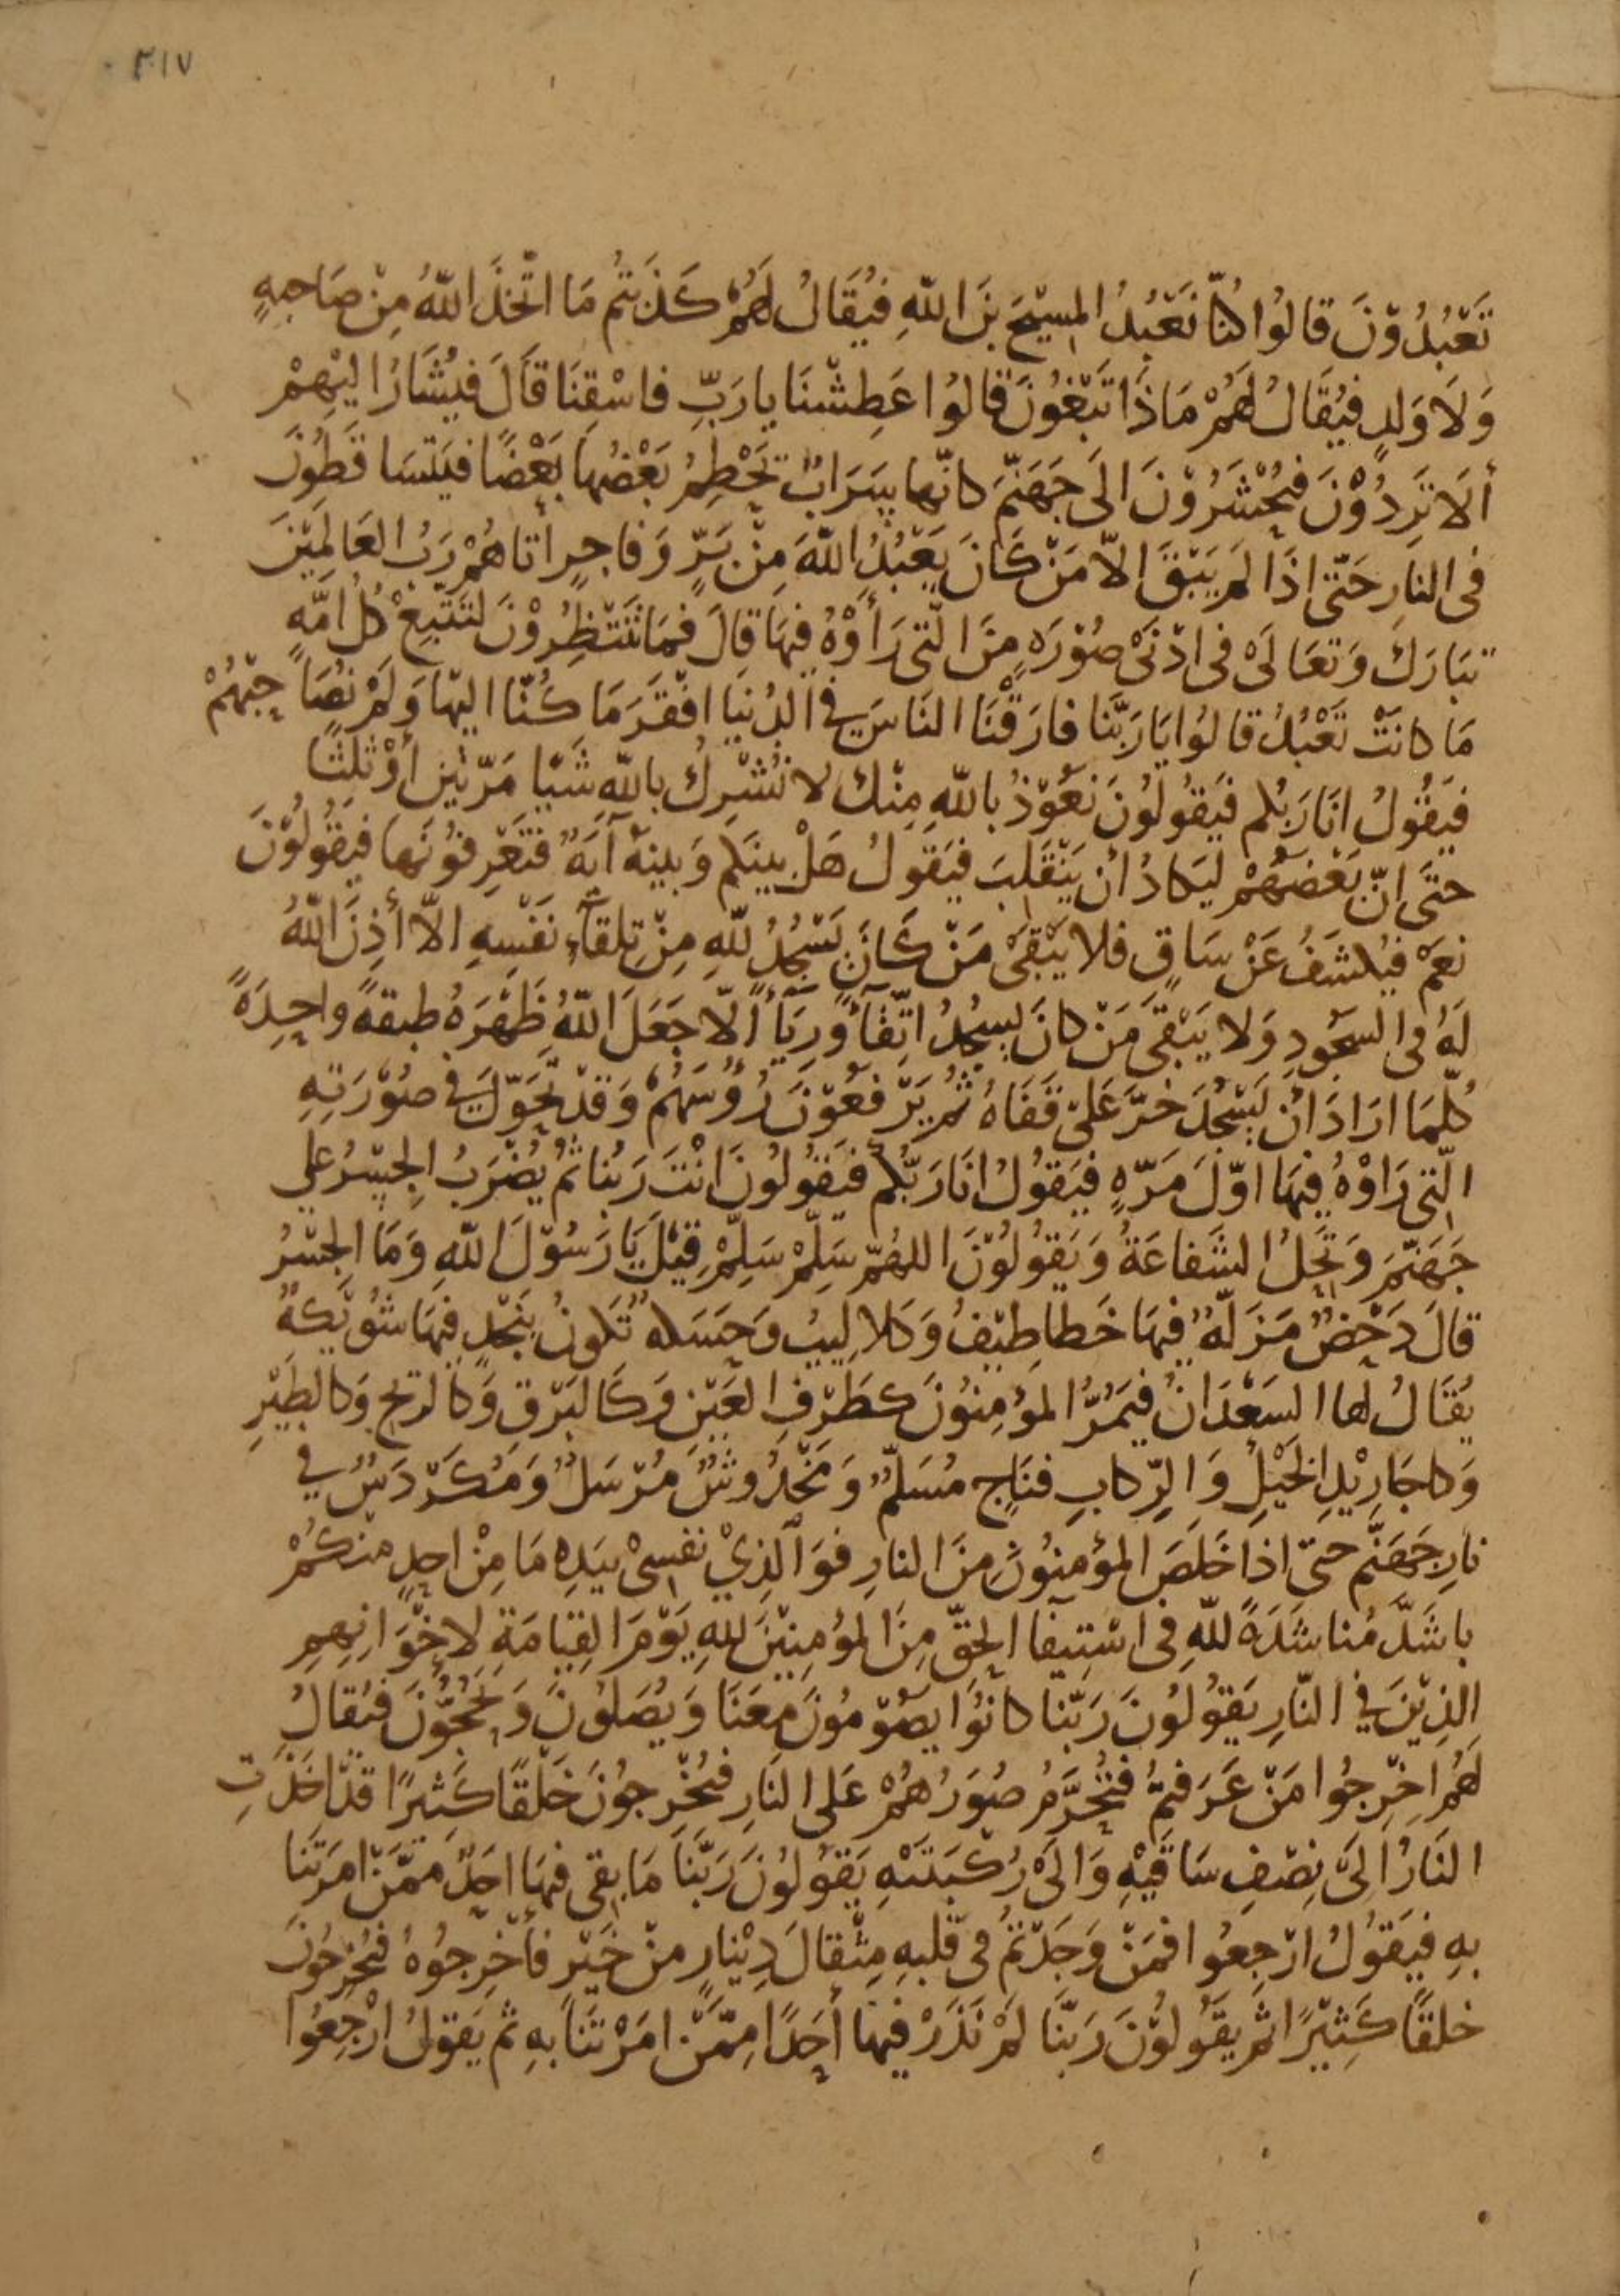 ٣١٧
تَعْبُدُوْنَ قالُوا كُنّا نَعْبُدُ المسِيْحَ بنَ اللّهِ فيُقَالُ لَهُمْ كَذَبتُم مَا اتَّخَذَ اللّهُ مِنْ صَاحِبهٍ
وَلَا وَلدٍ فيُقَالُ لَهُمْ مَاذَا تَبْغُونَ قالُوا عَطِشْنَا يارَبِّ فاسْقِنَا قَالَ فيُشَارُ اليْهِمْ
ألَا تَرِدُوْنَ فيُحْشَرُوْنَ الَى جَهَنَّمَ كانّها سَرَابٌ يَحْطِمُ بَعْضُها بَعْضًا فيَتَسَاقَطُونَ
فى النارِ حَتّى اذَا لم يَبْقَ الاّ مَنْ كَانَ يَعْبُدُ اللّهَ مِنْ بَرٍّ وَفاجِرٍ اتاهُمْ رَبُ العَالمِيْنَ
تبَارَكَ وَتعَالَىْ فى ادْنَىْ صُوْرَهٍ مِنَ الّتى رَأوْهُ فيهَا قالَ فمَا تَنْتَظِرُوْنَ لتَتْبَعْ كُل امّهٍ
مَا كانَتْ تَعْبُدُ قالُوا يَا رَبَّنا فارَقْنَا النَاسَ في الدُنيَا افْقَرَ مَا كُنّا اليْهم وَلَمْ نُصَاحِبْهُمْ
فيَقُولُ انَا رَبُكم فيَقُولُونَ نَعُوْذُ باللّهِ مِنْك لا نُشْرِكُ باللّهِ شَيْا مَرّتيْن أوْ ثلثًا
حتَى انّ بَعْضَهُمْ ليَكادُ أنْ يَنْقَلِبَ فيَقولُ هَلْ بينَكم وَبينهُ آيَهٌ فتَعْرِفوُنَها فيَقُولُوْنَ
نعَمْ فيُكشَفُ عَنْ سَاقٍ فلا يَبْقَىْ مَنْ كَانَ يَسْجُدُ للّهِ مِنْ تِلقآءِ نَفْسِهِ الاّ أذِنَ اللّهُ
لَهُ فى السجُودِ وَلا يَبْقَى مَنْ كانَ يسجُدُ اتّقآءً وَرِيَآءً الّا جَعَلَ اللّهُ ظَهْرَهُ طبقةً واحِدَةً
كُلّمَا ارَادَ انْ يَسْجُدَ خرَّ عَلىْ قَفَاهُ ثم يَرْفعُوْنَ رُؤُسَهُمْ وَقدْ تحَوّلَ في صُوْرَتِهِ
الّتى رَاوْهُ فيهَا اوّلَ مَرّهٍ فيَقُولُ انَا رَبُّكم فيَقُولُونَ انْتَ رَبُنا ثمُ يُضْرَبُ الجِسْرُ على
جَهَنّمَ وَتحِلُ الشَفاعَةُ وَيَقُولُوْنَ اللهُمّ سَلِّمْ سَلِّمْ قيْلَ يَا رَسُوْلَ اللّهِ وَمَا الجسْرُ
قالَ دَحْضٌ مَزَلّهٌ فيهَا خَطاطِيْفُ وَكلاليبُ وَحَسَكهٌ تَكونُ بنَجْدٍ فيهَا شُوَيْكةٌ
يُقَالُ لها السَعْدَانُ فيَمُرُّ المؤمِنُونَ كطَرْفِ العَيْنِ وَكَالبَرْقِ وَكالريح وَكالطَيْرِ
وَكاجَاوِيْدِ الخَيْلِ وَالرِّكابِ فنَاجٍ مُسَلّمٌ وَمَخْدُوشٌ مُرْسَلٌ وَمُكَرْدَسٌ في
نارِ جَهَنَّم حتى اذا خَلَصَ المؤمِنُونَ مِنَ النارِ فوَالّذِيْ نفسِىْ بيَدِهِ مَا مِنْ احدٍ منكُمْ
باشَدَّ مُناشَدَةً للّهِ فى اسْتِيفا الحقّ مِنَ المؤمِنِيْنَ للّهِ يَوْمَ القِيَامَةِ لاخْوَانِهِم
الذِيْنَ في النّارِ يَقُولُونَ رَبّنا كانوُا يصُوْمُونَ مَعَنَا وَيُصَلوُنَ وَيَحُجُّوْنَ فيُقالُ
لَهُم اخْرِجُوا مَنْ عَرَفتمُ فتُحَرَّمُ صُوَرُهُمْ عَلى النَارِ فيُخْرِجوُنَ خَلْقًا كَثيرًا قدْ اخَذتِ
النَارُ الَىْ نِصْفِ سَاقَيْهِ وَالَىْ رُكْبَتَيْهِ يَقُولُونَ رَبَّنَا مَا بقى فيها احَدٌ ممَّنْ امَرْتَنا
بهِ فيَقُولُ ارْجِعُوا فمَنْ وَجَدْتُمْ فى قَلبهِ مِثْقالَ دِيْنارٍ منْ خَيْرٍ فأخْرِجوُهُ فيُخْرِجُونَ
خلقًا كَثِيْرًا ثم يَقُولوُنَ رَبّنَا لَمْ نَذَرْ فيهَا أحَدًا مِمّنْ امَرْتَنَا بهِ ثم يَقولُ ارْجِعُوا